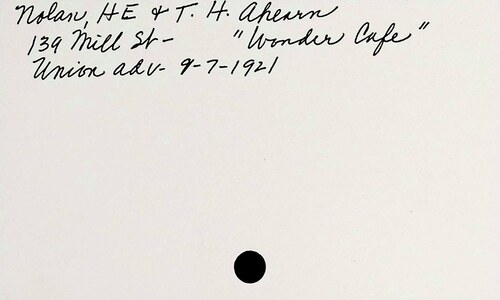 Nolan, HE & T. H. Ahearn
139 Mill St- "Wonder Cafe"
Union adv- 9-7-1921